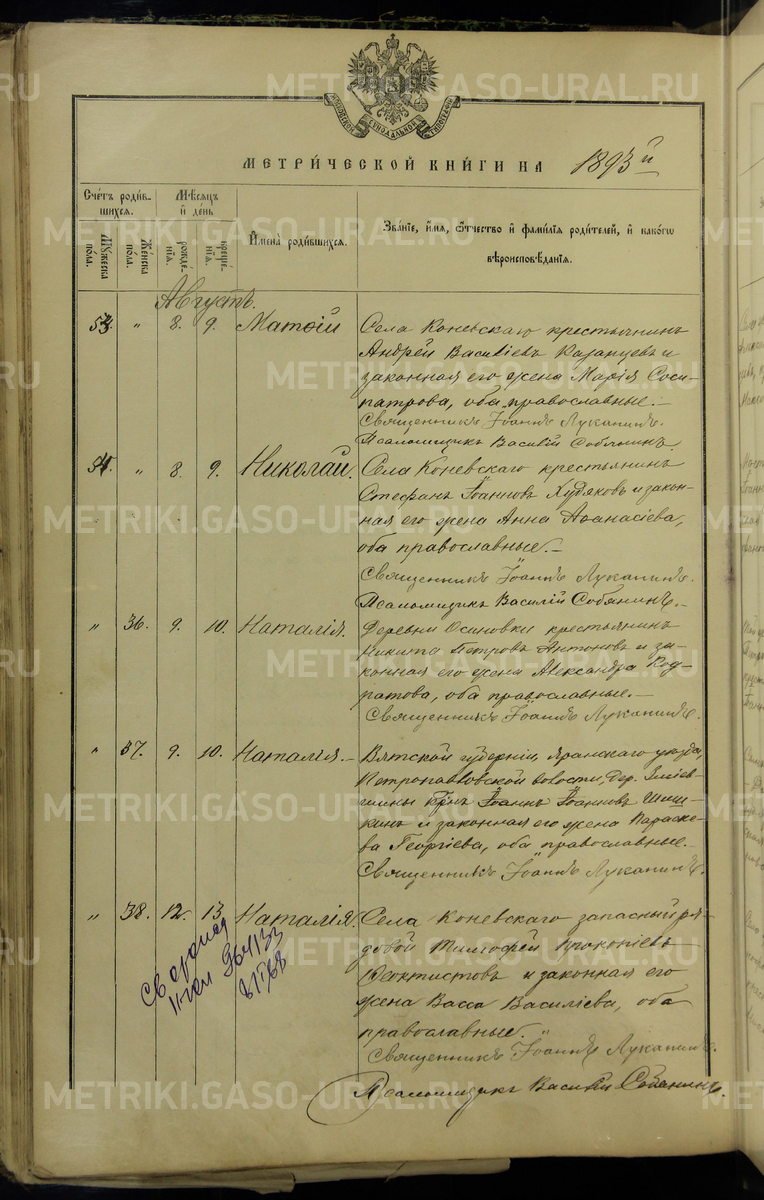 МЕТРИ́ЧЕСКОЙ КНИ́ГИ НА 1893й
Счѐтъ роди́вшихся.
Мѣ́сяцъ и҆ де́нь
И҆мена̀ роди́вшихся.
Зва́нїе, и҆́мя, ѻ҆́тчество и҆ фами́лїя роди́телей, и҆ како́гѡ вѣроисповѣ́данїя.
Мꙋ́жеска по́ла.
Же́нска по́ла.
рожде́нїя.
креще́нїя.
Августъ.
53. " 8. 9. Матѳій
Села Коневскаго крестьянинъ
Андрей Василіевъ Казанцевъ и
законная его жена Марія Соси-
патрова, оба православные.–
Священникъ Іоаннъ Луканинъ.
Псаломщикъ Василій Собянинъ.
54. " 8. 9. Николай.
Села Коневскаго крестьянинъ
Стефанъ Іоанновъ Худяковъ и закон-
ная его жена Анна Аѳанасіева,
оба православные.–
Священникъ Іоаннъ Луканинъ.
Псаломщикъ Василій Собянинъ.–
" 36. 9. 10. Наталія.
Деревни Осиновки крестьянинъ
Никита Петровъ Антоновъ и за-
конная его жена Александра Код-
ратова, оба православные.–
Священникъ Іоаннъ Луканинъ.
" 37. 9. 10. Наталія.–
Вятской губерніи, Яранскаго уѣзда,
Петропавловской волости, дер.
крнъ Іоаннъ Іоанновъ Шиш-
кинъ и законная его жена Параске-
ва Георгіева, оба православные.
Священникъ Іоаннъ Луканинъ.
" 38. 12. 13. Наталія.
Села Коневскаго запасный ря-
довой Тимофей Прокопіевъ
Ѳеоктистовъ и законная его
жена Васса Василіева, оба
православные."
Священникъ Іоаннъ Луканинъ.
Псаломщикъ Василій Собянинъ.
METRIKI.GASO-URAL.RU